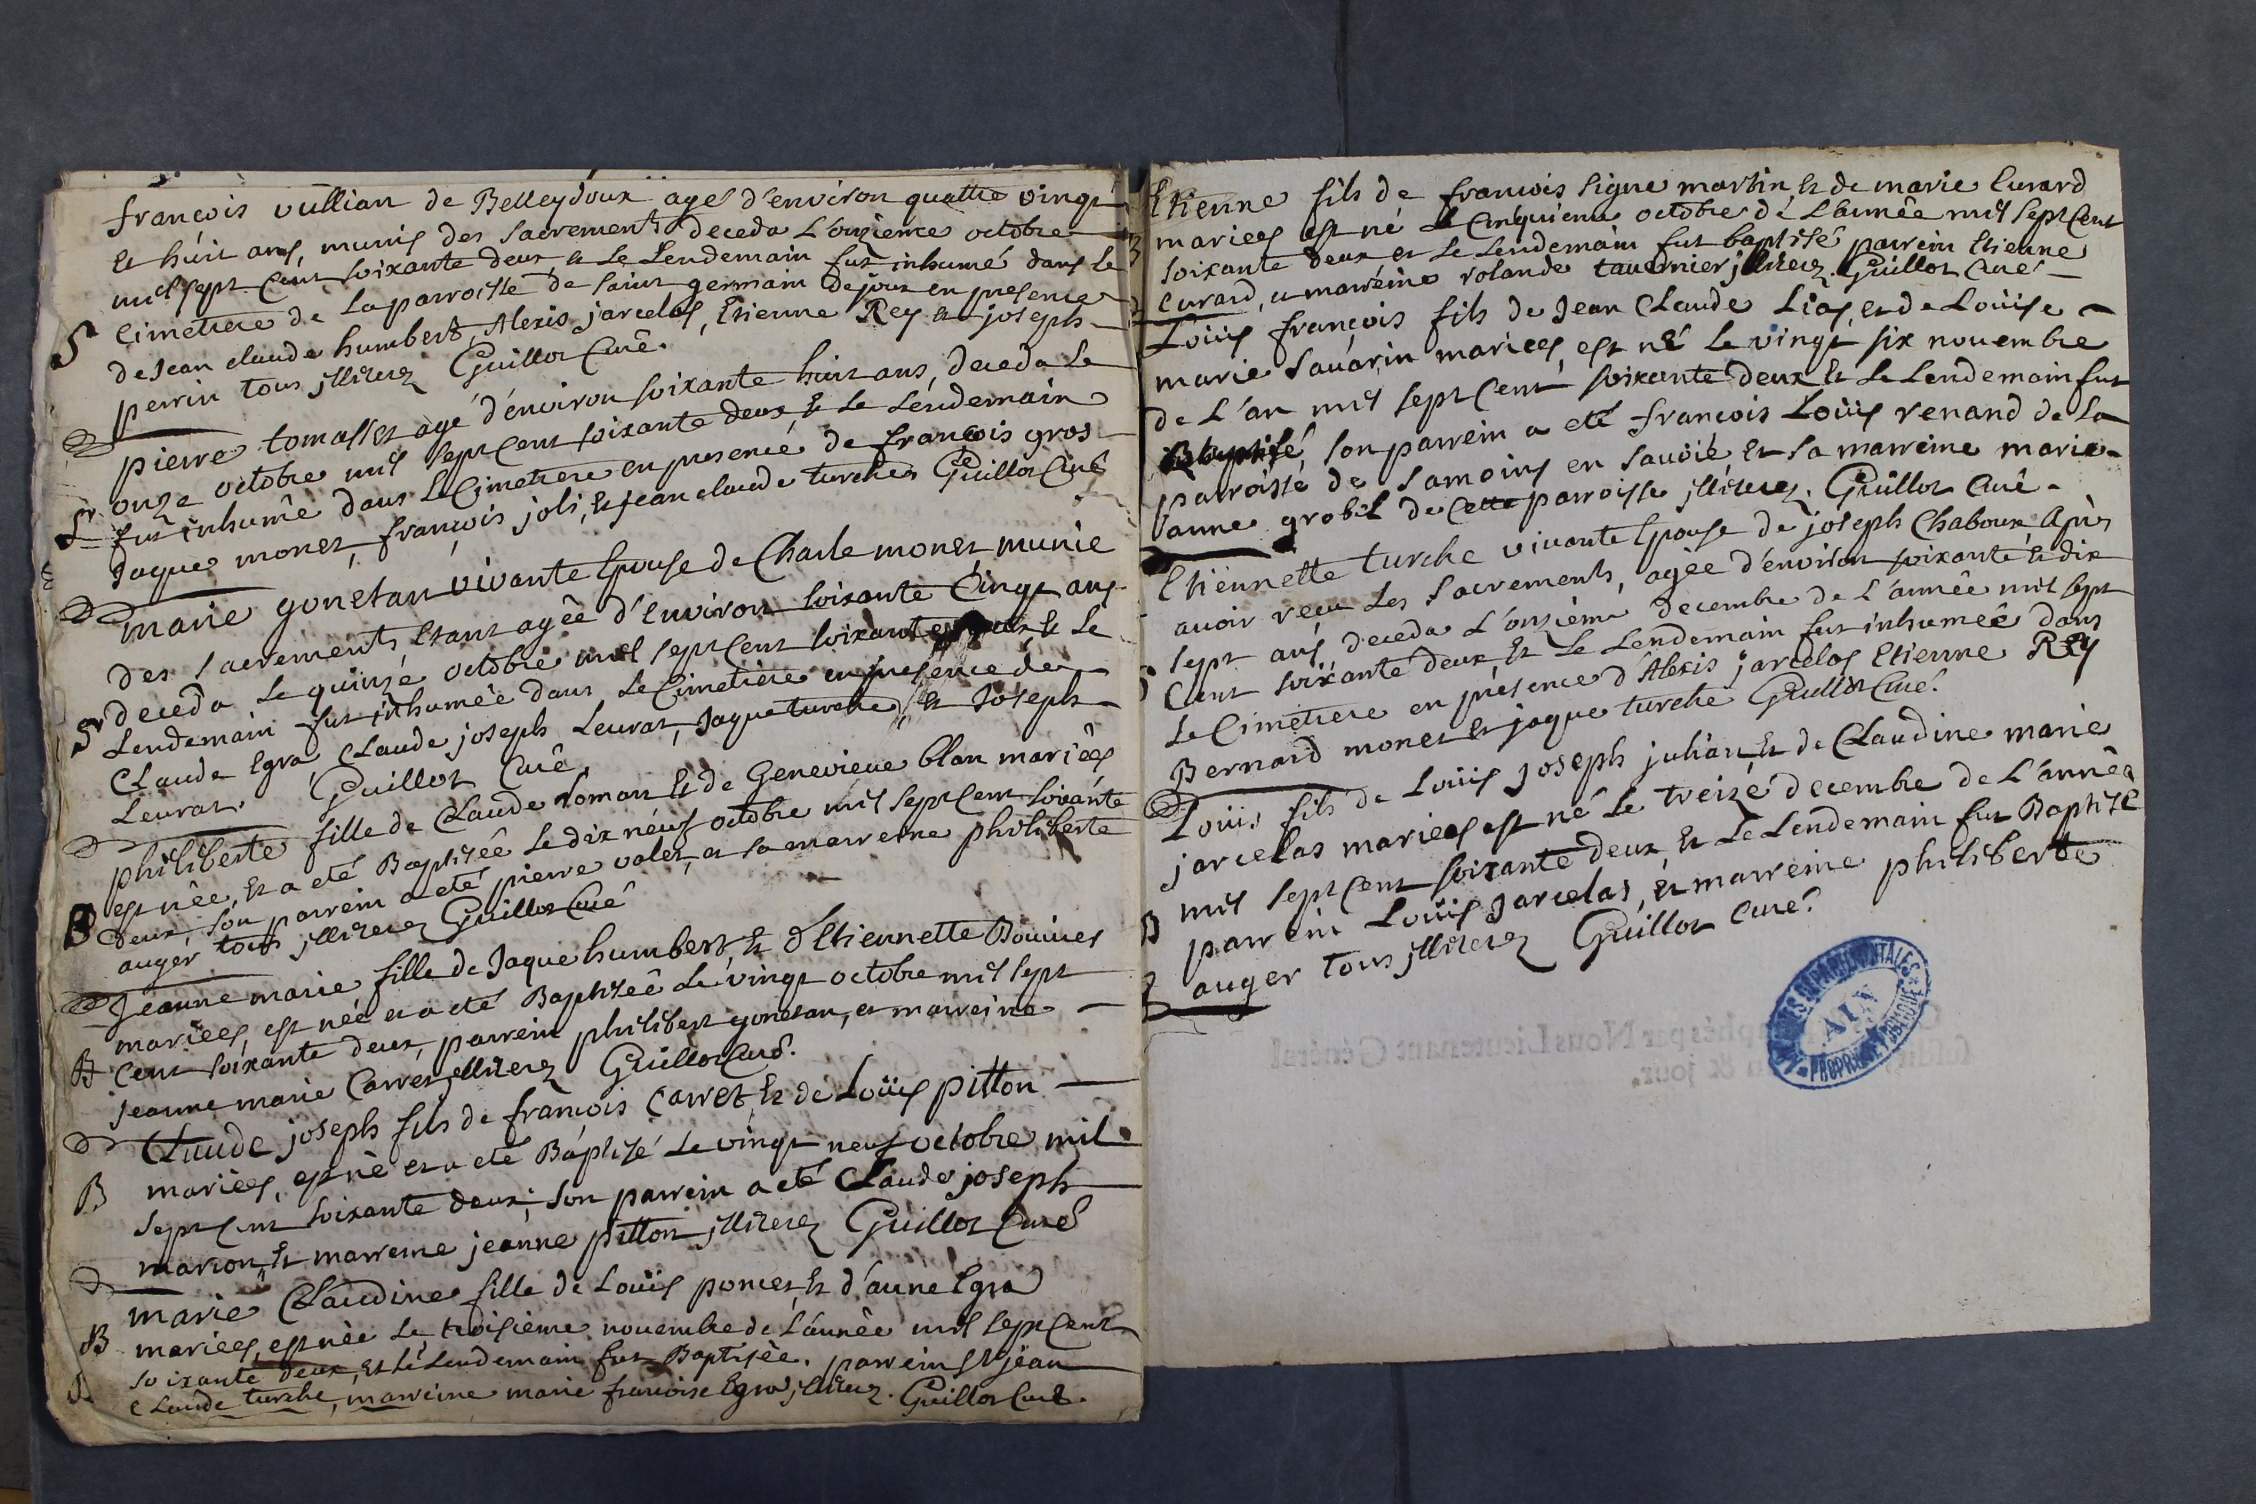 françois vullian de Belleydoux agé d'environ quattre vingt
et huit ans, munis des sacrements deceda l'onzieme octobre
mil sept cent soixante deux et le lendemain fut inhumé dans le
cimetiere de la parroisse de saint germain dejoux en presence
S
de Jean claude humbert, Alexis jarcelas, Etienne Rey et joseph
perrin tous illiterez Guillot Curé.
pierre tomasset agé d'environ soixante huit ans, deceda le
onze octobre mil sept cent soixante deux et le lendemain
Sr fut inhumé dans le Cimetiere en presence de françois gros
Jaque monet, françois joli, et jean claude turche Guillot Curé
marie gonetan vivante Epouse de Charle monet, munie
des sacrements etant agêe d'environ soixante Cinqt ans
Sr deceda le quinze octobre mil sept cent soixante deux et le
Lendemain fut inhumêe dans le Cimetiere en presence de
Claude Egra, Claude joseph Leurat, Jaque turche, et Joseph
Leurat. Guillot Curê.
philiberte fille de Claude Roman et de Genevieve blan mariêes
est nêe, et a eté Baptisêe le dix neuf octobre mil sept cent soixante
B deux, son parrein a eté pierre valet, et sa marreine philiberte
auger tous illiterez Guillot Curê
Jeanne marie fille de Jaque humbert, et d'Etiennette Bouvier
mariées, est née et a eté Baptisêe le vingt octobre mil sept
B cent soixante deux, parrein philibert gonetan, et marreine
jeanne marie Carret illiterez Guillot Curé.
Claude joseph fils de françois Carret, et de Loüis pitton
B mariées, est né et a eté Baptisé le vingt neuf octobre mil
sept cent soixante deux, son parrein a eté Claude joseph
marion, et marreine jeanne pitton illiterez Guillot Curé
marie Claudine fille de Loüis poncet, et d'anne Egra
B mariées, est née le troisieme novembre de l'année mil sept cent
soixante deux, et le lendemain fut Baptisêe. parrein jean
claude turche, marreine marie francoise Egra, illiterez. Guillot Curé.
Etienne fils de françois signe martin, et de marie Curard
mariees est né le Cinquieme octobre de l'année mil sept cent
B soixante deux et le lendemain fut baptisé parrein Etienne
Curard, et marreine rolande tavernier illiterez Guillot Curé
Loüis françois fils de Jean Claude Lias, et de Loüise
marie Savarin mariees, est né le vingt six novembre
de l'an mil sept cent soixante deux et le Lendemain fut
Baptisé, son parrein a eté françois Loüis renand de la
parroisse de Samoins en Savoie et sa marreine marie
anne grobel de cette parroisse illiterez. Guillot Curê.
Etiennette turche vivante Epouse de joseph Chaboux Après
avoir reçu les sacrements, agée d'environ soixante et dix
sept ans deceda l'onzieme decembre de l'année mil sept
S cent soixante deux, et le Lendemain fut inhumêe dans
Le Cimetiere en presence d'Alexis jarcelas Etienne Rey
Bernard monet et jaque turche Guillot Curé.
Loüis fils de Loüis Joseph julian, et de Claudine marie
jarcelas mariees est né le treize decembre de l'année
mil sept cent soixante deux, et le Lendemain fut Baptisé
B parrein Loüis Jarcelas, et marreine philiberte
auger tous illiterez Guillot Curé.
ARCHIVES DEPARTEMENTALES
AIN
PROPRIETE PUBLIQUE
par Nous Lieutenant Général
& jour.